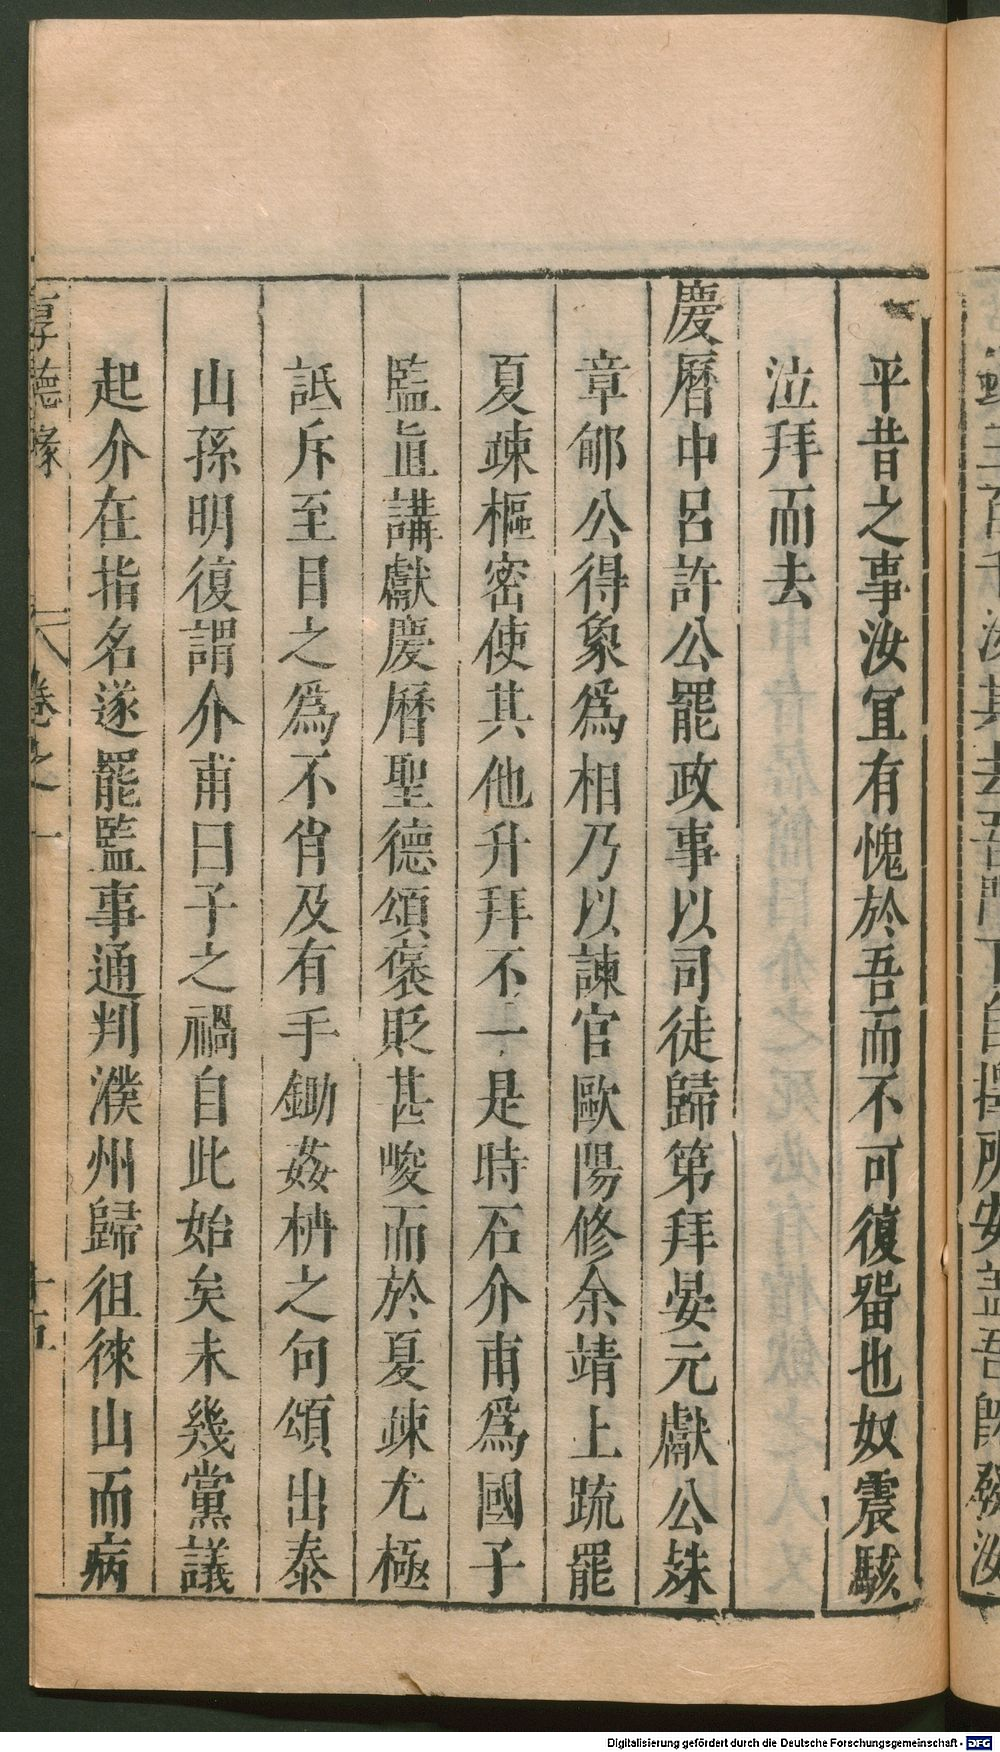 平昔之事汝冝有愧於吾而不可復畱也奴震駭
泣拜而去
慶曆中呂許公罷政事以司徒歸第拜晏元獻公殊
章郇公得象爲相乃以諫官歐陽修余靖上疏罷
夏竦樞密使其他升拜不一是時石介甫爲國子
監直講獻慶曆聖德頌褒貶甚峻而於夏竦尤極
詆斥至目之爲不肖及有手鋤姦枿之句頌出泰
山孫明復謂介甫曰子之禍自此始矣未幾黨議
起介在指名遂罷監事通判濮州歸徂徠山而病
厚德錄 卷之一 十五
Digitalisierung gefördert durch die Deutsche Forschungsgemeinschaft - DFG